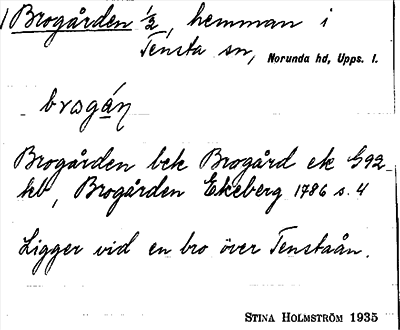 1 Brogården 1/2, hemman i
Tensta sn, Norunda hd, Upps. l.
brogán
Brogården bek Brogård ek G92
kb, Brogården Ekeberg 1786 s. 4
Ligger vid en bro över Tenstaån.
STINA HOLMSTRÖM 1935